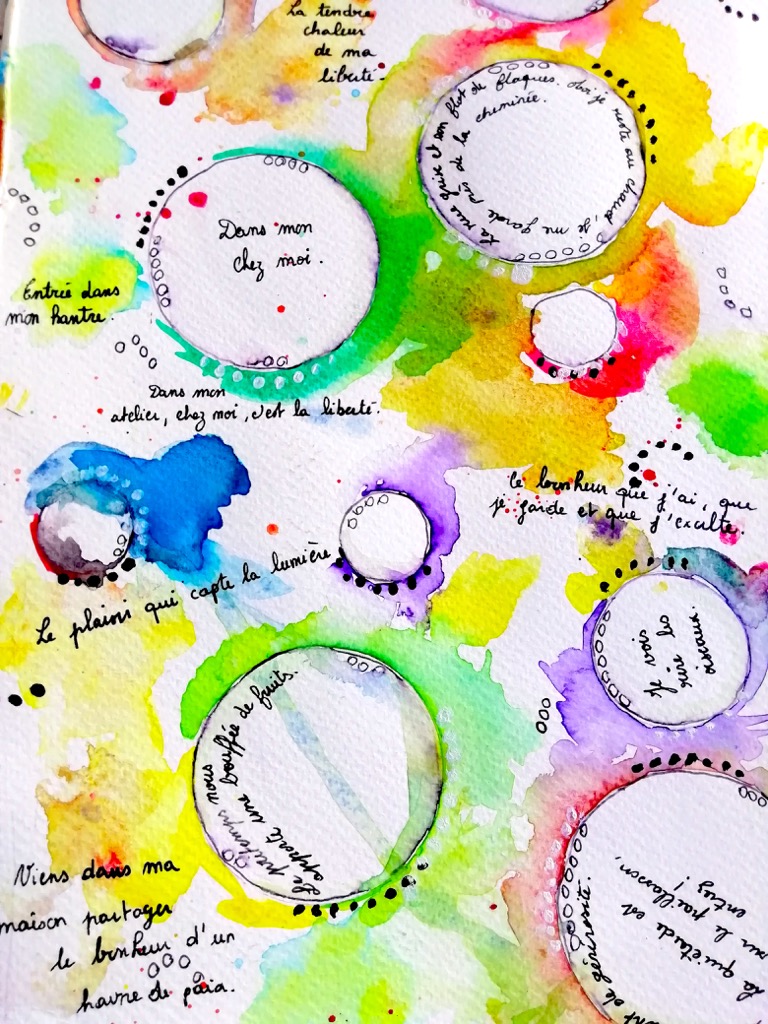 La tendre
chaleur
de ma
liberté.
La rue grise et son flot de flaques. Moi je reste au chaud, je me garde près de la
cheminée.
Dans mon
chez moi.
Entrée dans
mon hantre.
Dans mon
atelier, chez moi, c'est la liberté.
Le bonheur que j'ai, que
je garde et que j'exulte.
Le plaisir qui capte la lumière
Je vois
rire les
oiseaux.
Le printemps nous
apporte une bouffée de fruits.
Viens dans ma
maison partager
le bonheur d'un
havre de paix.
La quiétude est
sur le paillasson,
entrez !
de générosité.